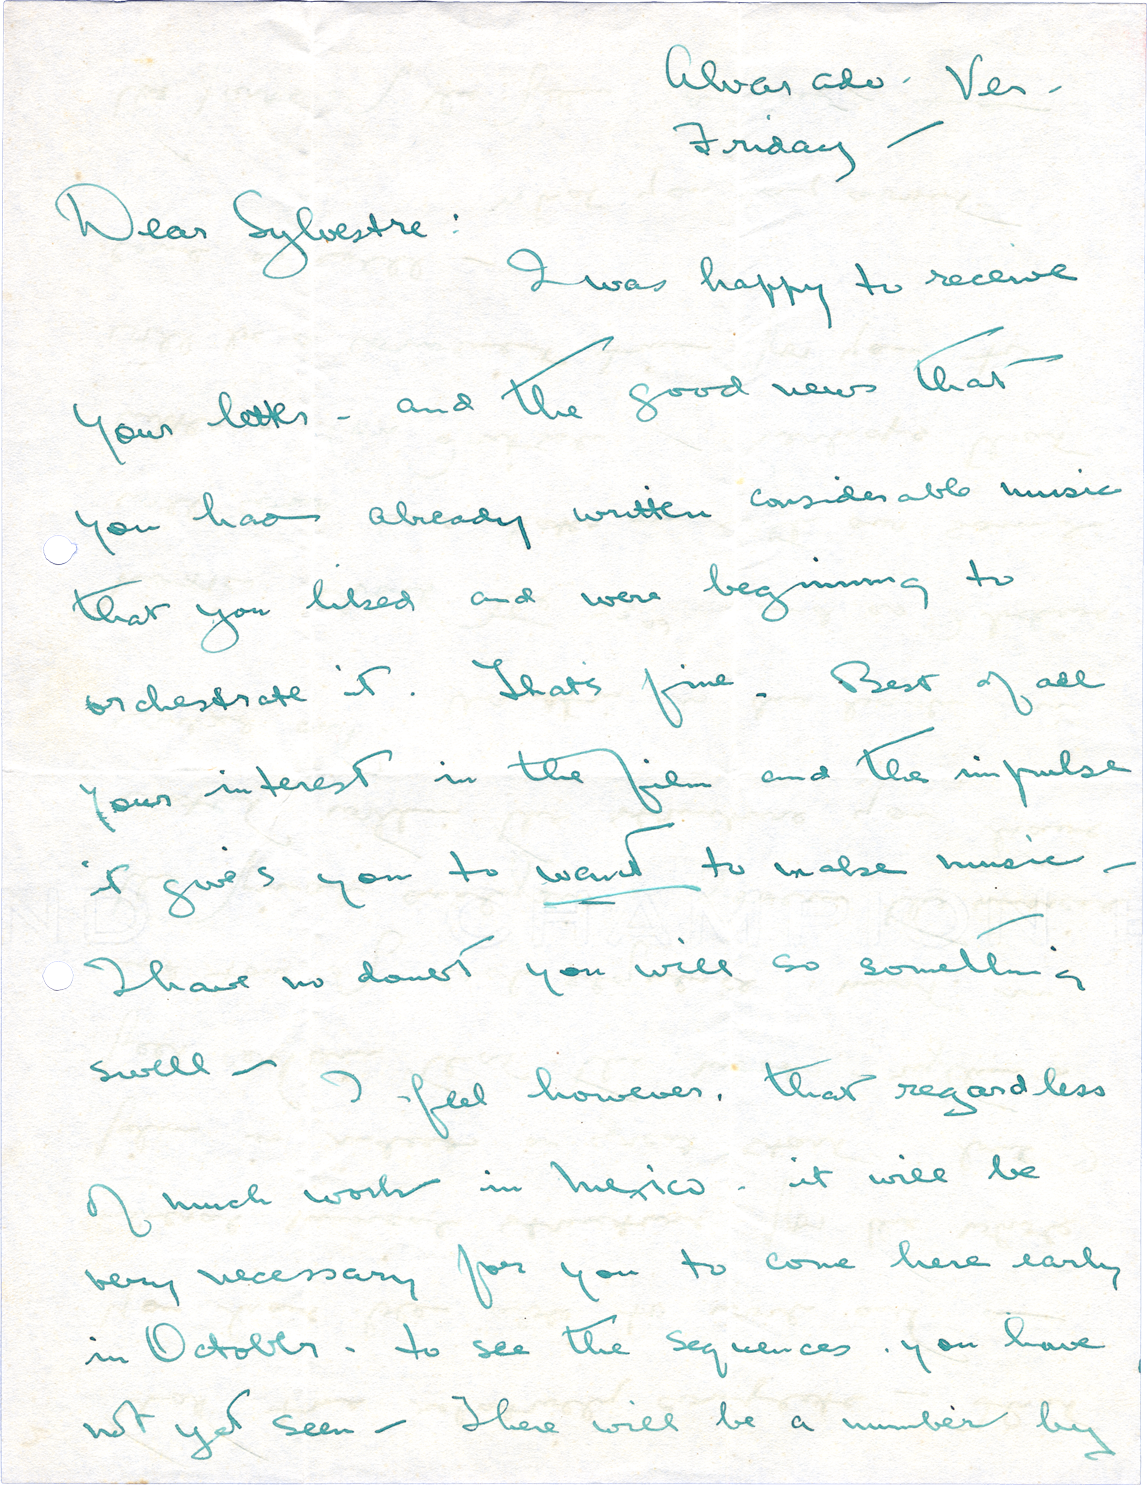 Alvarado - Ver -
Friday -
Dear Sylvestre:
I was happy to receive
your letter - and the good news that
you had already written considerable music
that you liked and were beginning to
orchestrate it. That's fine. Best of all
your interest in the film and the impulse
it gives you to want to make music -
I have no doubt you will do something
swell - I feel however, that regardless
of much work in Mexico - it will be
very necessary for you to come here early
in October - to see the sequences you have
not yet seen - There will be a number by